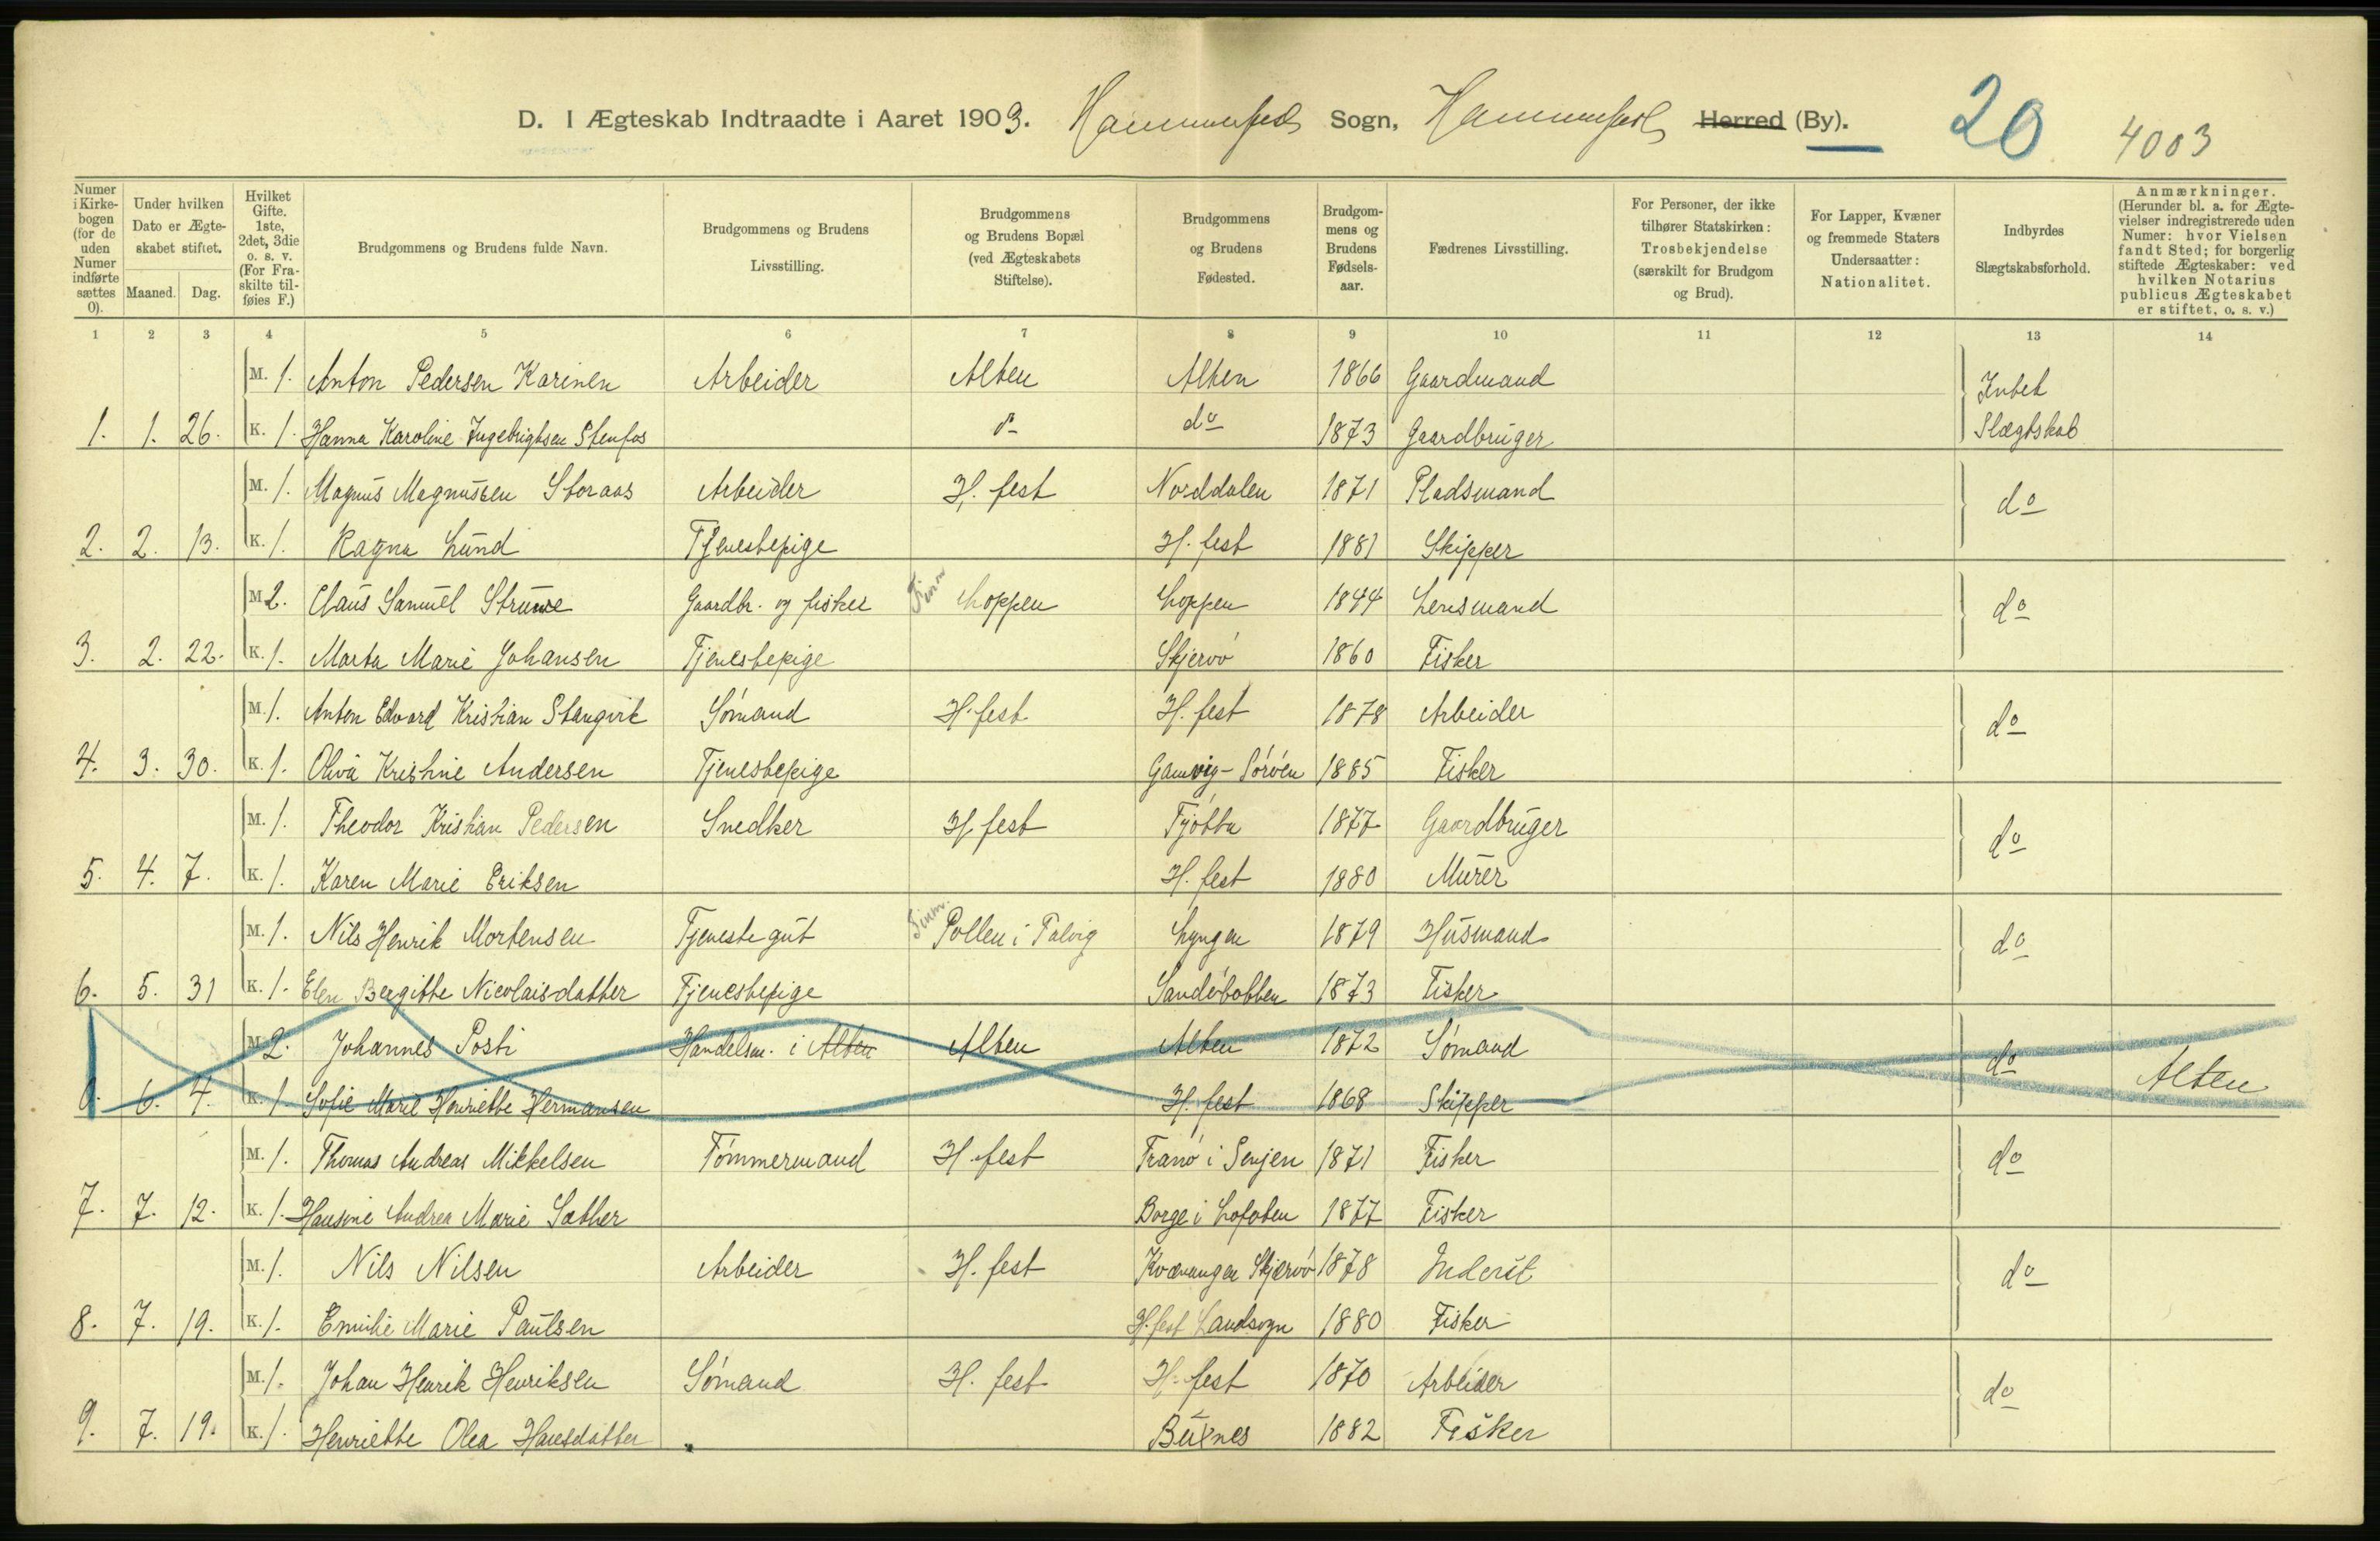 D. I Ægteskab Indtraadte i Aaret 1903. Hammerfest Sogn, Hammerfest Herred (By). 20 4003
Numer i Kirkebogen (for de uden Numer indførte sættes 0).
Under hvilken Dato er Ægteskabet stiftet.
Maaned. Dag.
Hvilket Gifte. 1ste, 2det, 3die o. s. v. (For Fraskilte tilføies F.)
Brudgommens og Brudens fulde Navn.
Brudgommens og Brudens Livsstilling.
Brudgommens og Brudens Bopæl (ved Ægteskabets Stiftelse).
Brudgommens og Brudens Fødested.
Brudgommens og Brudens Fødselsaar.
Fædrenes Livsstilling.
For Personer, der ikke tilhører Statskirken: Trosbekjendelse (særskilt for Brudgom og Brud).
For Lapper, Kvæner og fremmede Staters Undersaatter: Nationalitet.
Indbyrdes Slægtskabsforhold.
Anmærkninger. (Herunder bl. a. for Ægtevielser indregistrerede uden Numer: hvor Vielsen fandt Sted; for borgerlig stiftede Ægteskaber: ved hvilken Notarius publicus Ægteskabet er stiftet, o. s. v.)
1 2 3 4 5 6 7 8 9 10 11 12 13 14
M. 1. Anton Pedersen Karinen Arbeider Alten Alten 1866 Gaardmand Intet
1. 1. 26. K. 1. Hanna Karoline Ingebrigtsen Stenfos do do 1873 Gaardbruger Slægtskab
M. 1. Magnus Magnussen Storaas Arbeider H. fest Norddalen 1871 Pladsmand do
2. 2. 13. K. 1. Ragna Lund Tjenestepige H. fest 1881 Skipper
M. 2. Claus Samuel Struwe Gaardbr. og fisker Finm Loppen Loppen 1844 Lensmand do
3. 2. 22. K. 1. Marta Marie Johansen Tjenestepige Skjervö 1860 Fisker
M. 1. Anton Edvard Kristian Stangvik Sömand H. fest H. fest 1878 Arbeider do
4. 3. 30. K. 1. Oliva Kristine Andersen Tjenestepige Gamvig - Söröen 1885 Fisker
M. 1. Theodor Kristian Pedersen Snedker H. fest Tjötta 1877 Gaardbruger do
5. 4. 7. K. 1. Karen Marie Eriksen H. fest 1880 Murer
M. 1. Nils Henrik Mortensen Tjenestegut Finm. Pollen i Talvig Lyngen 1879 Husmand do
6. 5. 31 K. 1. Elen Bergitte Nicolaisdatter Tjenestepige Sandöbotten 1873 Fisker
M. 2. Johannes Posti Handelsm. i Alten Alten Alten 1872 Sömand do
0. 6. 4. K. 1 Sofie Marie Henriette Hermansen H. fest 1868 Skipper Alten
M. 1. Thomas Andreas Mikkelsen Tömmermand H. fest Tranö i Senjen 1871 Fisker do
7. 7. 12. K. 1. Hansine Andrea Marie Sæther Borge i Lofoten 1877 Fisker
M. 1. Nils Nilsen Arbeider H. fest Kvænangen Skjervö 1878 Inderst do
8. 7. 19. K. 1. Emilie Marie Paulsen H. fest Landsogn 1880 Fisker
M. 1. Johan Henrik Henriksen Sömand H. fest H. fest 1870 Arbeider do
9. 7. 19. K. 1. Henriette Olea Hansdatter Buxnes 1882 Fisker